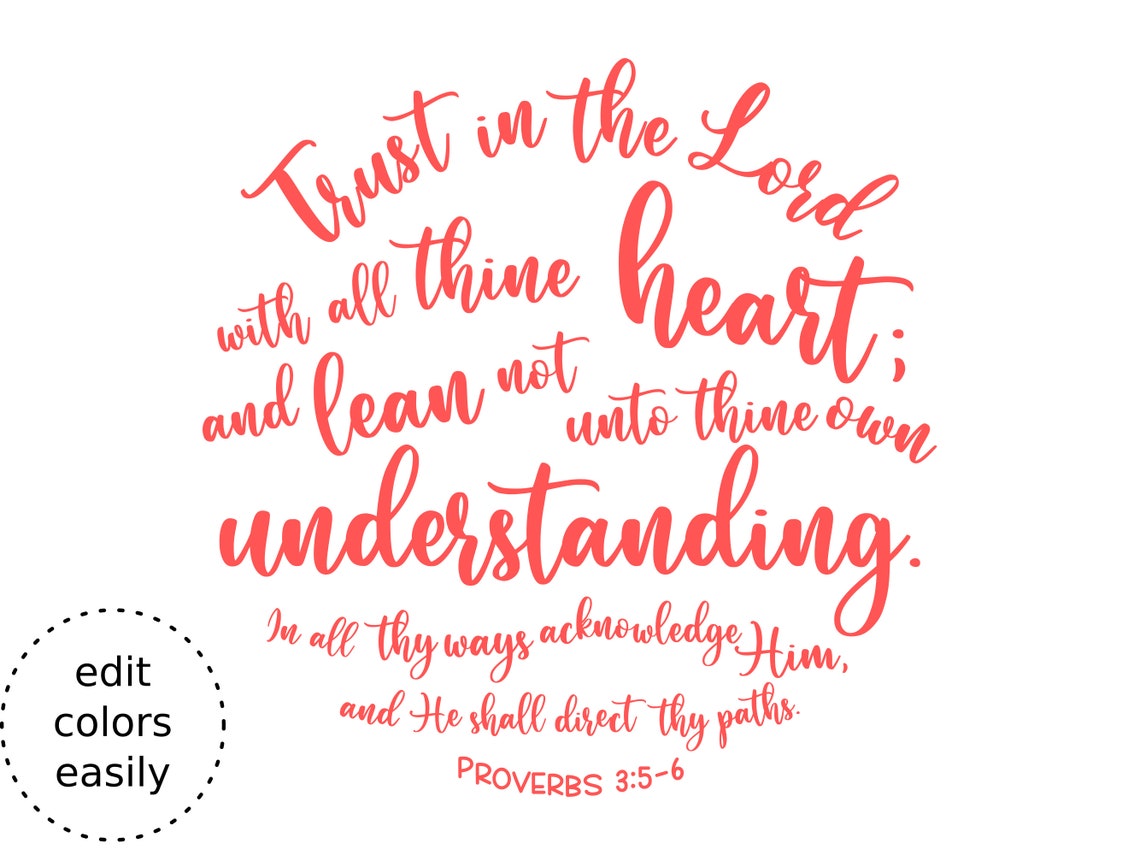 Trust in the Lord
with all thine heart;
and lean not unto thine own
understanding.
In all thy ways acknowledge Him,
and He shall direct thy paths.
PROVERBS 3:5-6
edit
colors
easily